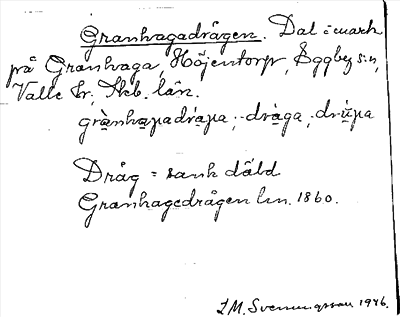 Granhagadrågen. Dal i mark
på Granhaga, Höjentorp, Eggby sn,
Valle hr, Skb. län.
Dråg = sank däld
Granhagedrågen lm. 1860.
I.M. Svenungsson 1946.